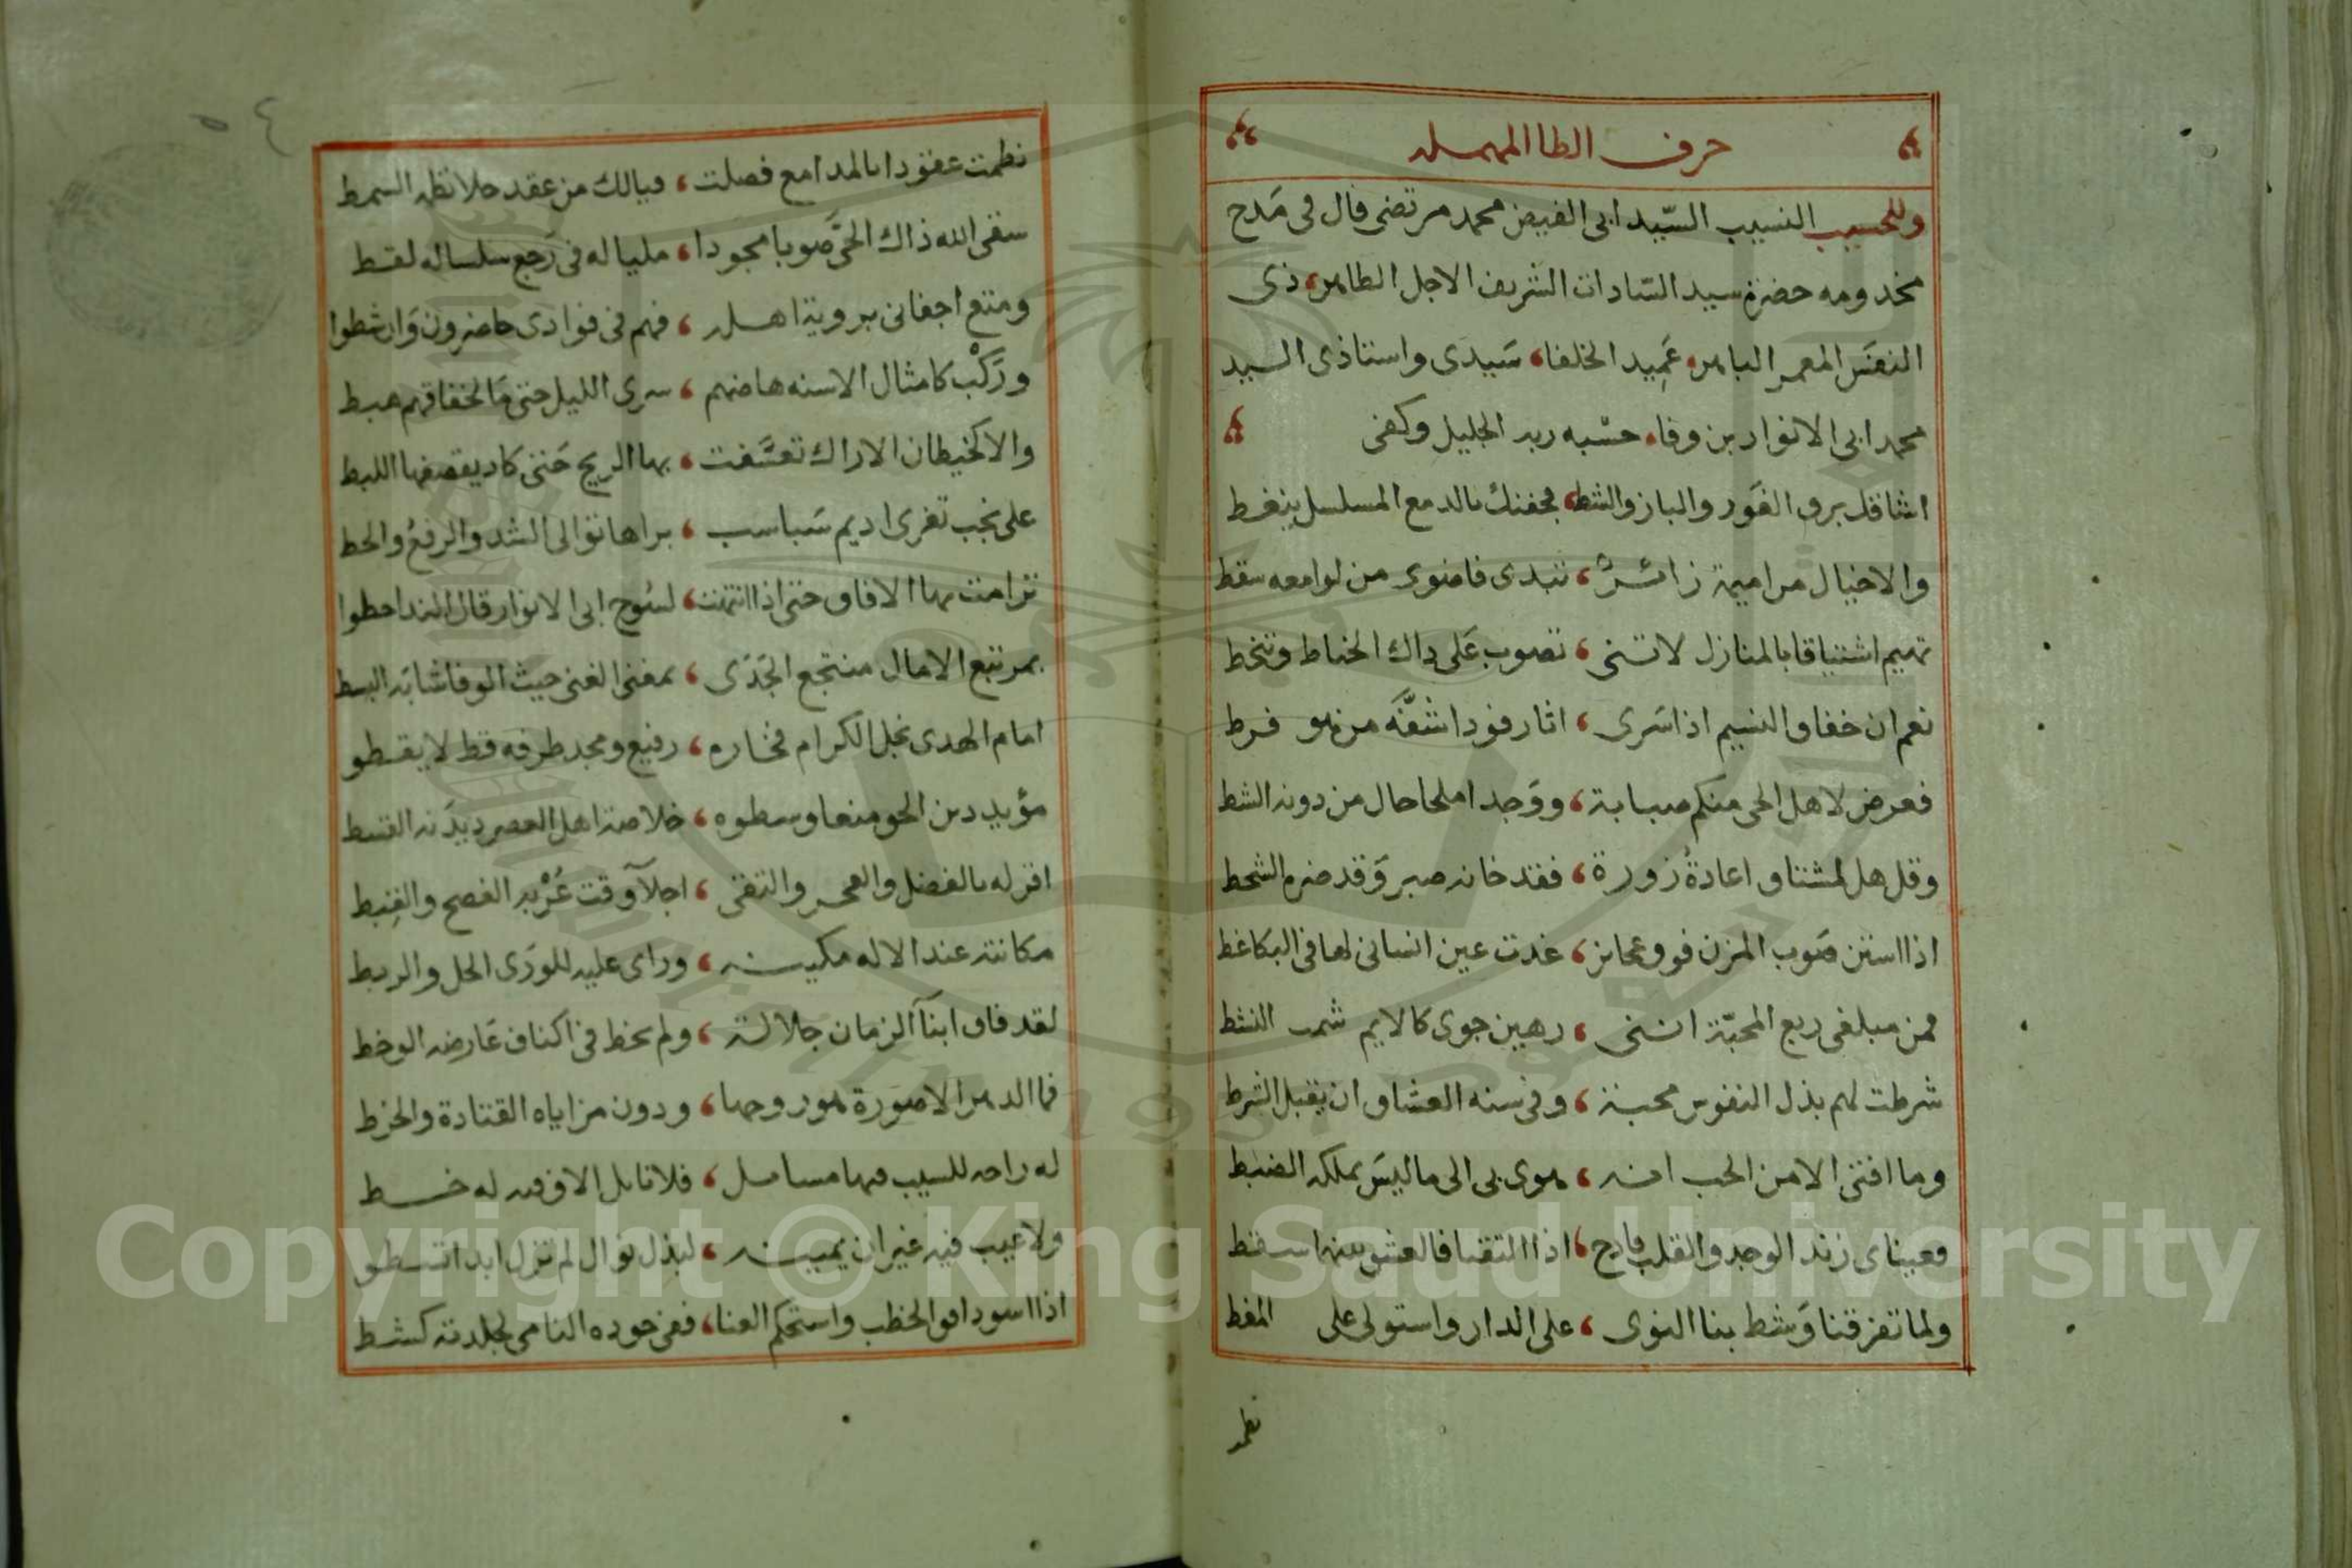 حرف الطا المهمله
وللحسيب النسيب السيد ابى الفيض محمد مرتضى قال فى مَدح
مخدومه حضرة سيد السّادات الشريف الاجل الطاهر، ذى
النفَس المعمر الباهر، عَمِيد الخلفا، سَيدى واستاذى السيد
محمد ابى الانوار بن وفا، حسْبه ربه الجليل وكفى
اشاقك برق الغَور والبان والشط، فجفنك بالدمع المسلسل ينغط
والاخيال مراميمة زائر، تبدى فاضوى من لوامعه سقط
تهيم اشتياقا بالمنازل لاتنى، تصوب عَلى ذاك الخناط وتنخط
نعم ان خفاق النسيم اذا سَرى، اثار فودا شفَّه من هو فرط
فعرض لاهل الحى منكم صبابة، ووَجدا ملحا حال من دونه الشط
وقل هل لمشتاق اعادةُ زورة، فقد خانه صبر وَقد ضره الشحط
اذا استن صَوب المزن فوق محاجز، غدت عين انسانى لها فى البكا غط
فمن مبلغى ربع المحبّة اننى، رهين جوى كالايم شمـ النشط
شرطت لهم بذل النفوس محبة، وفى سنه العشاق ان يقبل الشرط
وما افتى الا من الحب انه، هوى بى الى ما ليسَ يملكه الضبط
فعيناى زند الوجد والقلب قادح، اذا التقيا فالعشق بينهما سقط
ولما تفرقنا وَشط بنا النوى، على الدار واستولى على المغط
نظمـ
نظمت عقودا بالمدامع فصلت، فيالك من عقد حلا نظمه السمط
سقى الله ذاك الحىَّ صوبا مجودا، مليا له فى رَجع سلساله لقط
ومتع اجفانى بروية اهله، فهم فى فوادى حاضرون وَان شطوا
ورَكْب كامثال الاسنه هاضهم، سرى الليل حتى مَا لخفاقهم هبط
والا كخيطان الاراك تعسَّفت، بها الريح حَتى كاد يقصفها اللبط
على نجب تفرى اديم سَباسب، براها توالى الشد والرفعُ والحط
ترامت بها الافاق حتى اذا انتهت، لسُوح ابى الانوار قال الندا حطوا
بمرتبع الامال منتجع الجَدَى، بمغنى الغنى حيث الوفا شانه البسط
امام الهدى نجل الكرام فخاره، رفيع ومجد طرفه قط لا يقطو
مؤيد دين الحق منعا وسطوه، خلاصة اهل العصر ديدَنه القسط
اقر له بالفضل والفخـر والتقى، اجلآ وقت عُرْبه الفصح والقبط
مكانته عند الاله مكينـه، وراى عليه للورَى الحل والربط
لقد فاق ابنآ الزمان جلالة، ولم يخط فى اكناف عَارضه الوخط
فما الدهر الا صورة هو روحها، ودون مزاياه القتادة والخرط
له راحه للسيب فيها مسامل، فلا نايل الا وفيه له خـط
ولا عيب فيه غير ان يمينـه، لبذل نوال لم تزل ابدا تسطو
اذا اسود افق الخطب واستحكم العنا، ففى جوده النامى لجلدته كشط